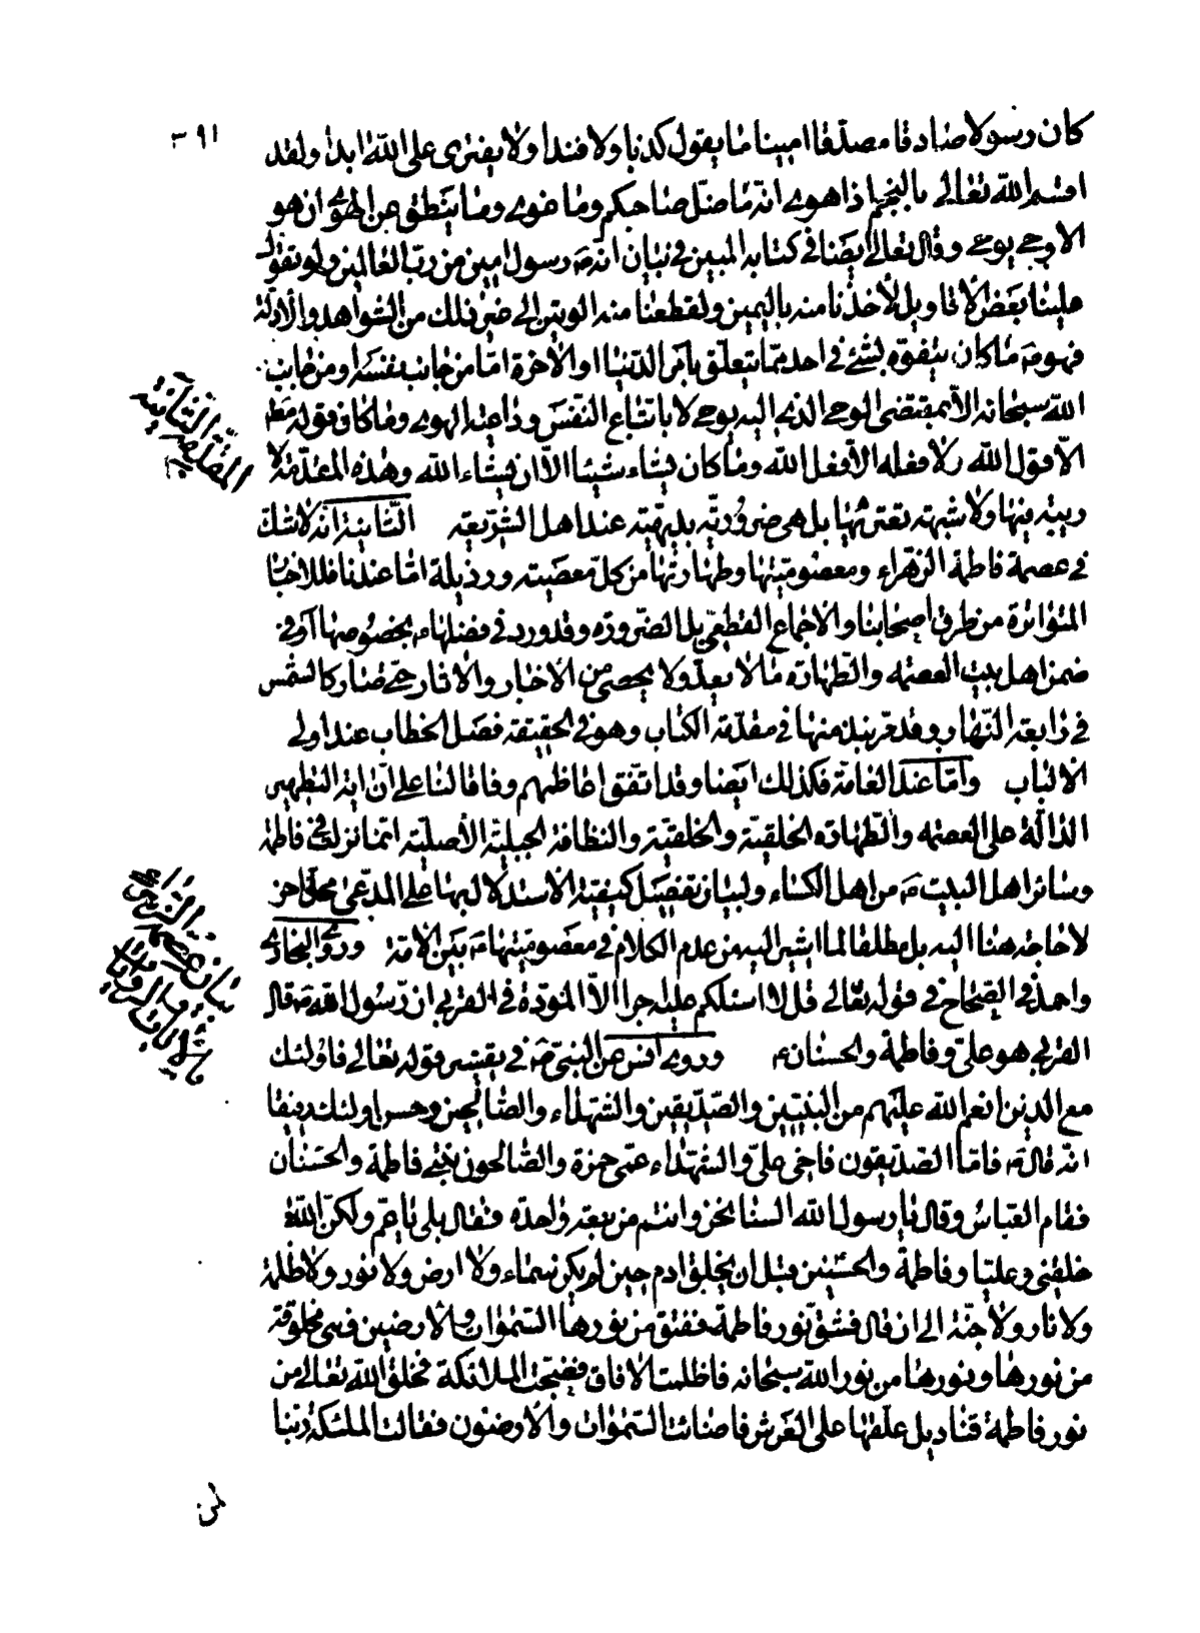 ٣٩١
كان رسولا صادقا مصدّقا امينا ما يقول كذبا ولا فندا ولا يفترى على الله ابدا ولقد
اقسم الله تعالى بالنجم اذا هوى انه ما ضلّ صاحبكم وما غوى وما ينطق عن الهوى ان هو
الا وحى يوحى وقال تعالى ايضا فى كتابه المبين فى بيان انّه رسول امين من ربّ العالمين ولو تقوّل
علينا بعض الاقاويل لأخذنا منه باليمين ولقطعنا منه الوتين الى غير ذلك من الشواهد والأدلّة
فهو ما كان يتفوّه بشئ فى احد ممّا يتعلّق بامر الدّنيا او الآخرة امّا من جانب نفسه او من جانب
الله سبحانه الاّ بمقتضى الوحى الذى اليه يوحى لا باتّباع النّفس وداعية الهوى وما كان قوله قط
الاّ قول الله ولا فعله الاّ فعل الله وما كان يشاء شيئا الاّ ان يشاء الله وهذه المقدّمة لا
ريبة فيها ولا شبهة تعتريها بل هى ضروريّة بديهيّة عند اهل الشّريعة الثّانية انّه لا شك
فى عصمة فاطمة الزهراء ومعصوميّتها وطهارتها من كلّ معصية ورذيلة امّا عندنا فللاخبار
المتواترة من طرق اصحابنا والاجماع القطعىّ بل الضرورة وقد ورد فى فضلها بخصوصها او فى
ضمن اهل بيت العصمة والطّهارة ما لا يعدّ ولا يحصى من الاخبار والاثار حتّى صار كالشمس
فى رابعة النّهار وقد مرّ نبذ منها فى مقدّمة الكتاب وهو فى الحقيقة فصل الخطاب عند اولى
الالباب وامّا عند العامّة فكذلك ايضا وقد اتّفق اعاظمهم وفاقا لنا على انّ اية التطهير
الدّالّة على العصمة والطّهارة الخلقيّة والخلقيّة والنظافة الجبليّة الأصليّة انّما نزلت فى فاطمة
وسائر اهل البيت من اهل الكساء ولبيان تفصيل كيفيّة الاستدلال بها على المدّعى محلّ اخر
لا حاجة هنا اليه بل مطلقا لما اشير اليه من عدم الكلام فى معصوميّتها بين الامّة وروى البخارى
واحمد فى الصّحاح فى قوله تعالى قل لا اسئلكم عليه اجرا الاّ المودّة فى القربى ان رسول الله قال
القربى هو علىّ وفاطمة والحسنان وروى انس عن النبىّ فى تفسير قوله تعالى فاولئك
مع الذين انعم الله عليهم من النبيّين والصّدّيقين والشّهداء والصّالحين وحسن اولئك رفيقا
انّه قال فامّا الصّدّيقون فاخى علىّ والشّهداء عمّى حمزة والصّالحون بنتى فاطمة والحسنان
فقام العبّاس وقال يا رسول الله السنا نحن وانتم من نبعة واحدة فقال بلى يا عمّ ولكنّ اللّه
خلقنى وعليّا وفاطمة والحسنين قبل ان يخلق ادم حين لم يكن سماء ولا ارض ولا نور ولا ظلمة
ولا نار ولا جنّة الى ان قال فشقّ نور فاطمة ففتق من نورها السّموات والارضين فهى مخلوقة
من نورها ونورها من نور الله سبحانه فاظلمت الافاق فضجّت الملائكة فخلق الله تعالى من
نور فاطمة قناديل علّقها على العرش فاضائت السّموات والأرضون فقالت الملئكة ربّنا
المقدّمة الثّانية
لمن